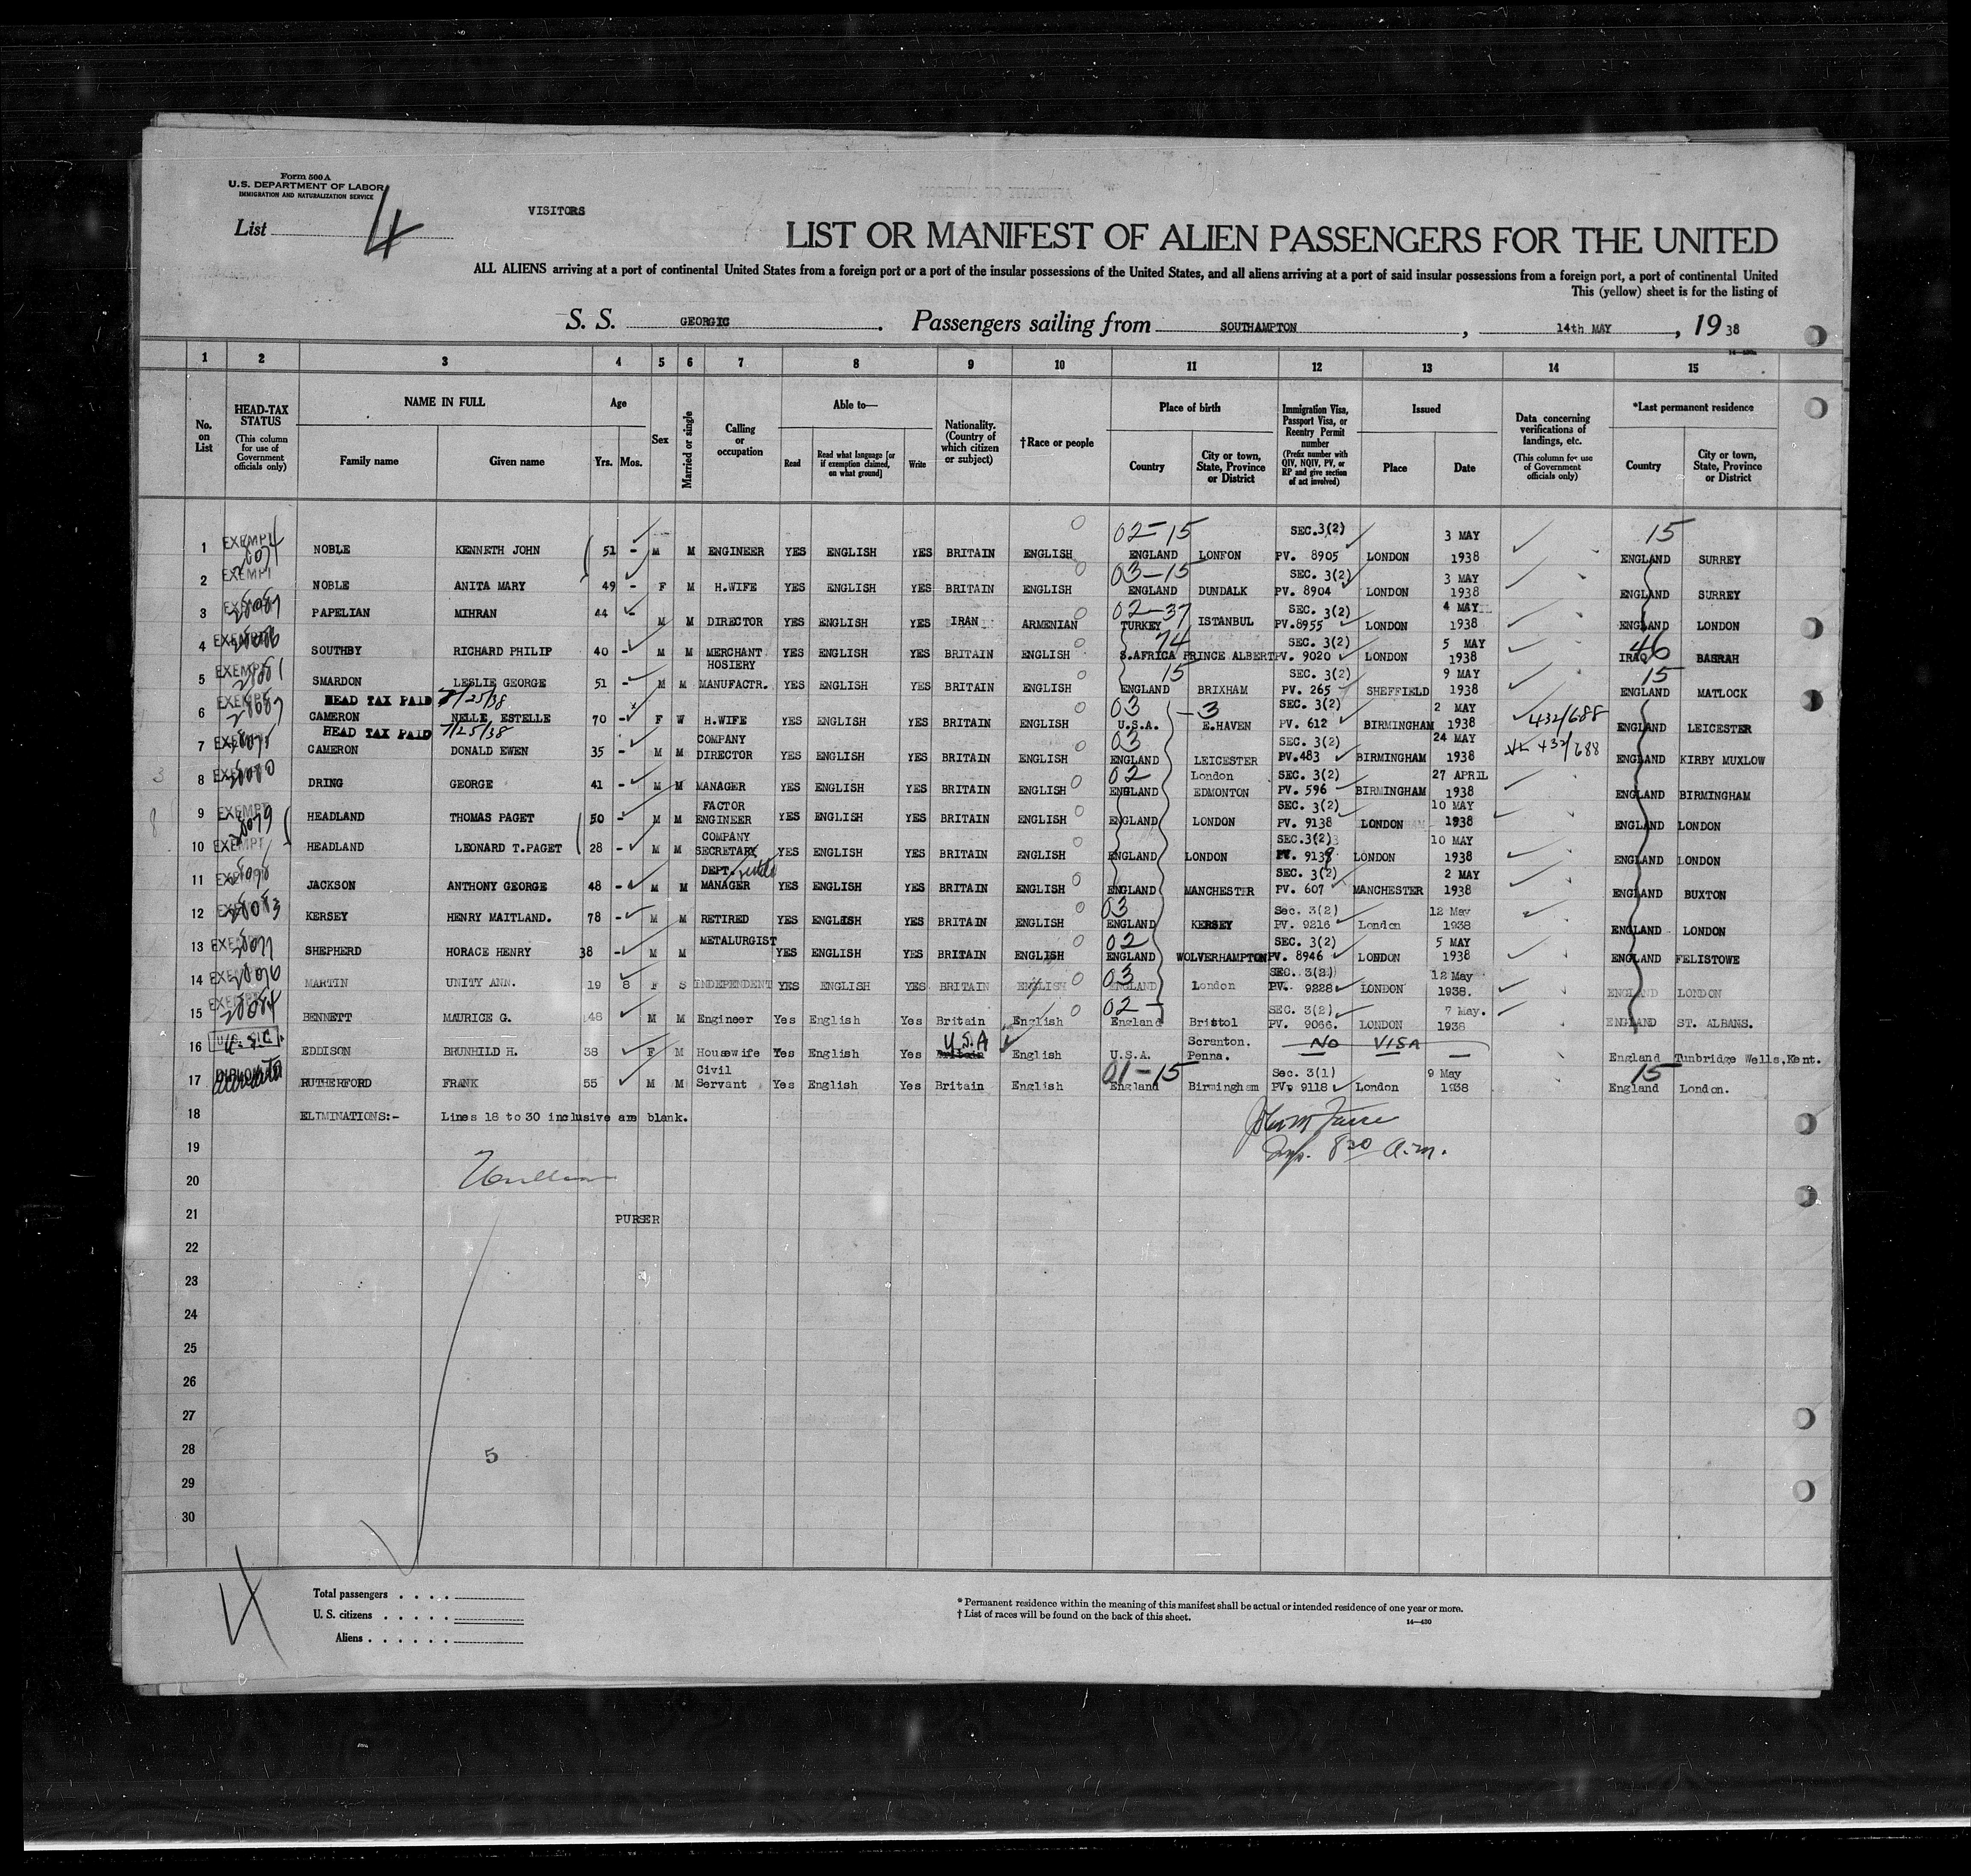 Form 500 A
U.S. DEPARTMENT OF LABOR
IMMIGRATION AND NATURALIZATION SERVICE
List 4
VISITORS
LIST OR MANIFEST OF ALIEN PASSENGERS FOR THE UNITED
ALL ALIENS arriving at a port of continental United States from a foreign port or a port of the insular possessions of the United States, and all aliens arriving at a port of said insular possessions from a foreign port, a port of continental United
This (yellow) sheet is for the listing of
S. S. GEORGIC. Passengers sailing from SOUTHAMPTON, 14th MAY, 19 38
1 2 3 4 5 6 7 8 9 10 11 12 13 14 15
No. on List
HEAD-TAX STATUS (This column for use of Government officials only)
NAME IN FULL
Family name Given name
Age
Yrs. Mos.
Sex
Married or single
Calling or occupation
Able to—
Read Read what language [or if exemption claimed, on what ground] Write
Nationality. (Country of which citizen or subject)
†Race or people
Place of birth
Country City or town, State, Province or District
Immigration Visa, Passport Visa, or Reentry Permit number (Prefix number with QIV, NQIV, PV, or RP and give section of act involved)
Issued
Place Date
Data concerning verifications of landings, etc. (This column for use of Government officials only)
*Last permanent residence
Country City or town, State, Province or District
02-15 SEC.3(2) 3 MAY 15
1 EXEMPT NOBLE KENNETH JOHN 51 - M M ENGINEER YES ENGLISH YES BRITAIN ENGLISH ENGLAND LONFON PV. 8905 LONDON 1938 ENGLAND SURREY
03-15 SEC. 3(2) 3 MAY
2 EXEMPT NOBLE ANITA MARY 49 - F M H.WIFE YES ENGLISH YES BRITAIN ENGLISH ENGLAND DUNDALK PV. 8904 LONDON 1938 ENGLAND SURREY
02-37 SEC. 3(2) 4 MAY
3 PAPELIAN MIHRAN 44 - M M DIRECTOR YES ENGLISH YES IRAN ARMENIAN TURKEY ISTANBUL PV.8955 LONDON 1938 ENGLAND LONDON
74 SEC. 3(2) 5 MAY 46
4 SOUTHBY RICHARD PHILIP 40 - M M MERCHANT YES ENGLISH YES BRITAIN ENGLISH S.AFRICA PRINCE ALBERT PV. 9020 LONDON 1938 IRAQ BASRAH
HOSIERY 15 SEC. 3(2) 9 MAY 15
5 SMARDON LESLIE GEORGE 51 - M M MANUFACTR. YES ENGLISH YES BRITAIN ENGLISH ENGLAND BRIXHAM PV. 265 SHEFFIELD 1938 ENGLAND MATLOCK
HEAD TAX PAID 7/25/38 03 - 3 SEC. 3(2) 2 MAY
6 CAMERON NELLE ESTELLE 70 - F W H.WIFE YES ENGLISH YES BRITAIN ENGLISH U.S.A. E.HAVEN PV. 612 BIRMINGHAM 1938 432/688 ENGLAND LEICESTER
HEAD TAX PAID 7/25/38 COMPANY 03 SEC. 3(2) 24 MAY
7 CAMERON DONALD EWEN 35 - M M DIRECTOR YES ENGLISH YES BRITAIN ENGLISH ENGLAND LEICESTER PV.483 BIRMINGHAM 1938 432/688 ENGLAND KIRBY MUXLOW
02 London SEC. 3(2) 27 APRIL
8 DRING GEORGE 41 - M M MANAGER YES ENGLISH YES BRITAIN ENGLISH ENGLAND EDMONTON PV. 596 BIRMINGHAM 1938 ENGLAND BIRMINGHAM
FACTOR SEC. 3(2) 10 MAY
9 EXEMPT HEADLAND THOMAS PAGET 50 - M M ENGINEER YES ENGLISH YES BRITAIN ENGLISH ENGLAND LONDON PV. 9138 LONDON 1938 ENGLAND LONDON
COMPANY SEC.3(2) 10 MAY
10 EXEMPT HEADLAND LEONARD T.PAGET 28 - M M SECRETARY YES ENGLISH YES BRITAIN ENGLISH ENGLAND LONDON PV. 9139 LONDON 1938 ENGLAND LONDON
DEPT. SEC. 3(2) 2 MAY
11 JACKSON ANTHONY GEORGE 48 - M M MANAGER YES ENGLISH YES BRITAIN ENGLISH ENGLAND MANCHESTER PV. 607 MANCHESTER 1938 ENGLAND BUXTON
03 Sec. 3(2) 12 May
12 KERSEY HENRY MAITLAND. 78 - M M RETIRED YES ENGLISH YES BRITAIN ENGLISH ENGLAND KERSEY PV. 9216 London 1938 ENGLAND LONDON
METALURGIST 02 SEC. 3(2) 5 MAY
13 SHEPHERD HORACE HENRY 38 - M M YES ENGLISH YES BRITAIN ENGLISH ENGLAND WOLVERHAMPTON PV. 8946 LONDON 1938 ENGLAND FELISTOWE
03 SEC. 3(2) 12 May
14 MARTIN UNITY ANN. 19 8 F S INDEPENDENT YES ENGLISH YES BRITAIN ENGLISH ENGLAND London PV. 9228 LONDON 1938. ENGLAND LONDON
02 - SEC. 3(2) 7 May.
15 BENNETT MAURICE G. 48 M M Engineer Yes English Yes Britain English England Bristol PV. 9066. LONDON 1938 ENGLAND ST. ALBANS.
U.S.A Scranton. No VISA —
16 U.S.C. EDDISON BRUNHILD H. 38 F M Housewife Yes English Yes Britain English U.S.A. Penna. England Tunbridge Wells,Kent.
Civil 01-15 Sec. 3(1) 9 May 15
17 RUTHERFORD FRANK 55 M M Servant Yes English Yes Britain English England Birmingham PV. 9118 London 1938 England London.
18 ELIMINATIONS:- Lines 18 to 30 inclusive are blank.
19 Insp. 8 30 a.m.
20
21 PURSER
22
23
24
25
26
27
28 5
29
30
4
Total passengers . . . .
U. S. citizens . . . . .
Aliens . . . . . .
* Permanent residence within the meaning of this manifest shall be actual or intended residence of one year or more.
† List of races will be found on the back of this sheet.
14—430